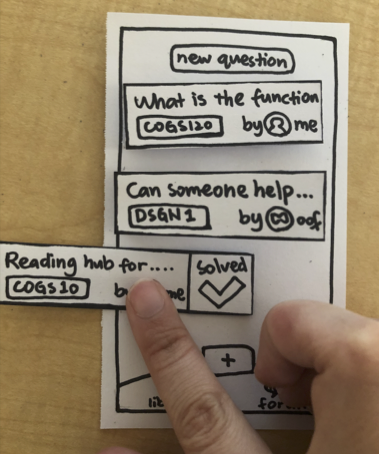 new question
What is the function
COGS120 by me
Can someone help...
DSGN1 by oof
Reading hub for.... solved
COGS10 me
+